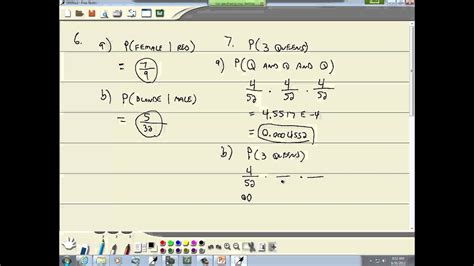 6.
a) P(FEMALE | RED)
= 7/9
b) P(BLONDE | MALE)
= 5/32
7.
P(3 QUEENS)
a) P(Q AND Q AND Q)
4/52 · 4/52 · 4/52
= 4.5517 E-4
= 0.0004552
b) P(3 QUEENS)
4/52 · __ · __